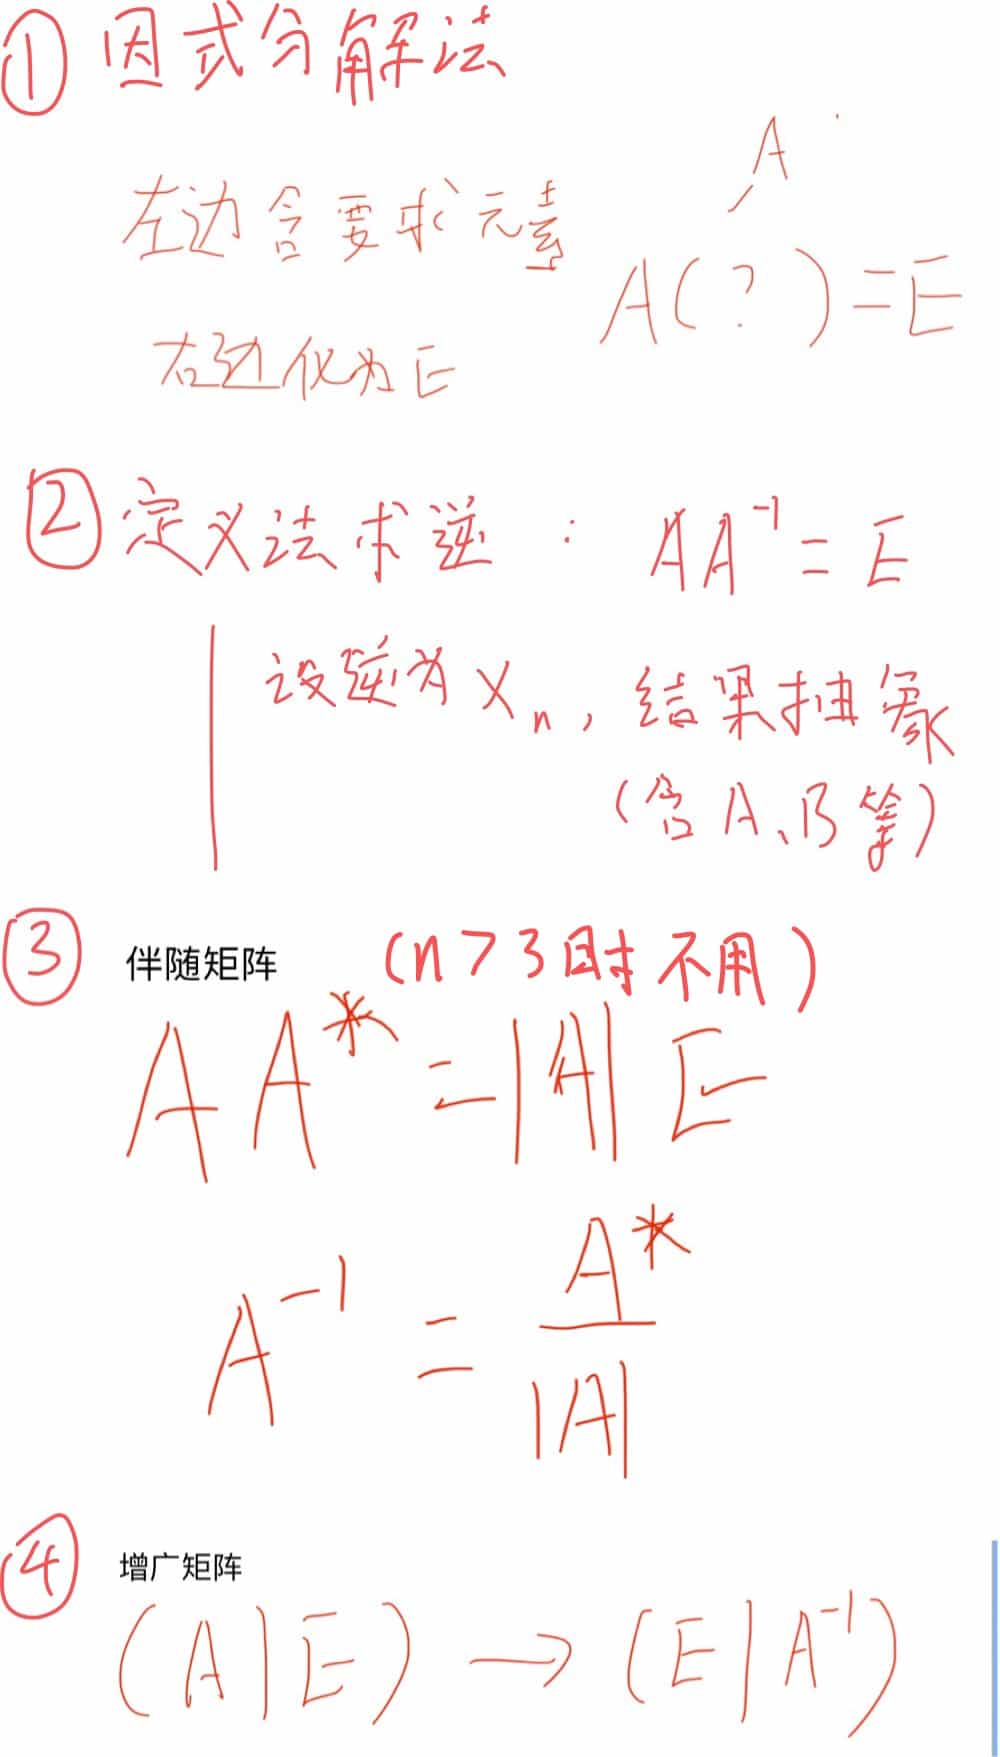 ① 因式分解法
A
左边含要求元素
A(?)=E
右边化为E
② 定义法求逆: AA⁻¹=E
设逆为Xₙ,结果抽象
(含A、B等)
③ 伴随矩阵 (n>3时不用)
AA*=|A|E
A⁻¹=A*/|A|
④ 增广矩阵
(A|E)→(E|A⁻¹)